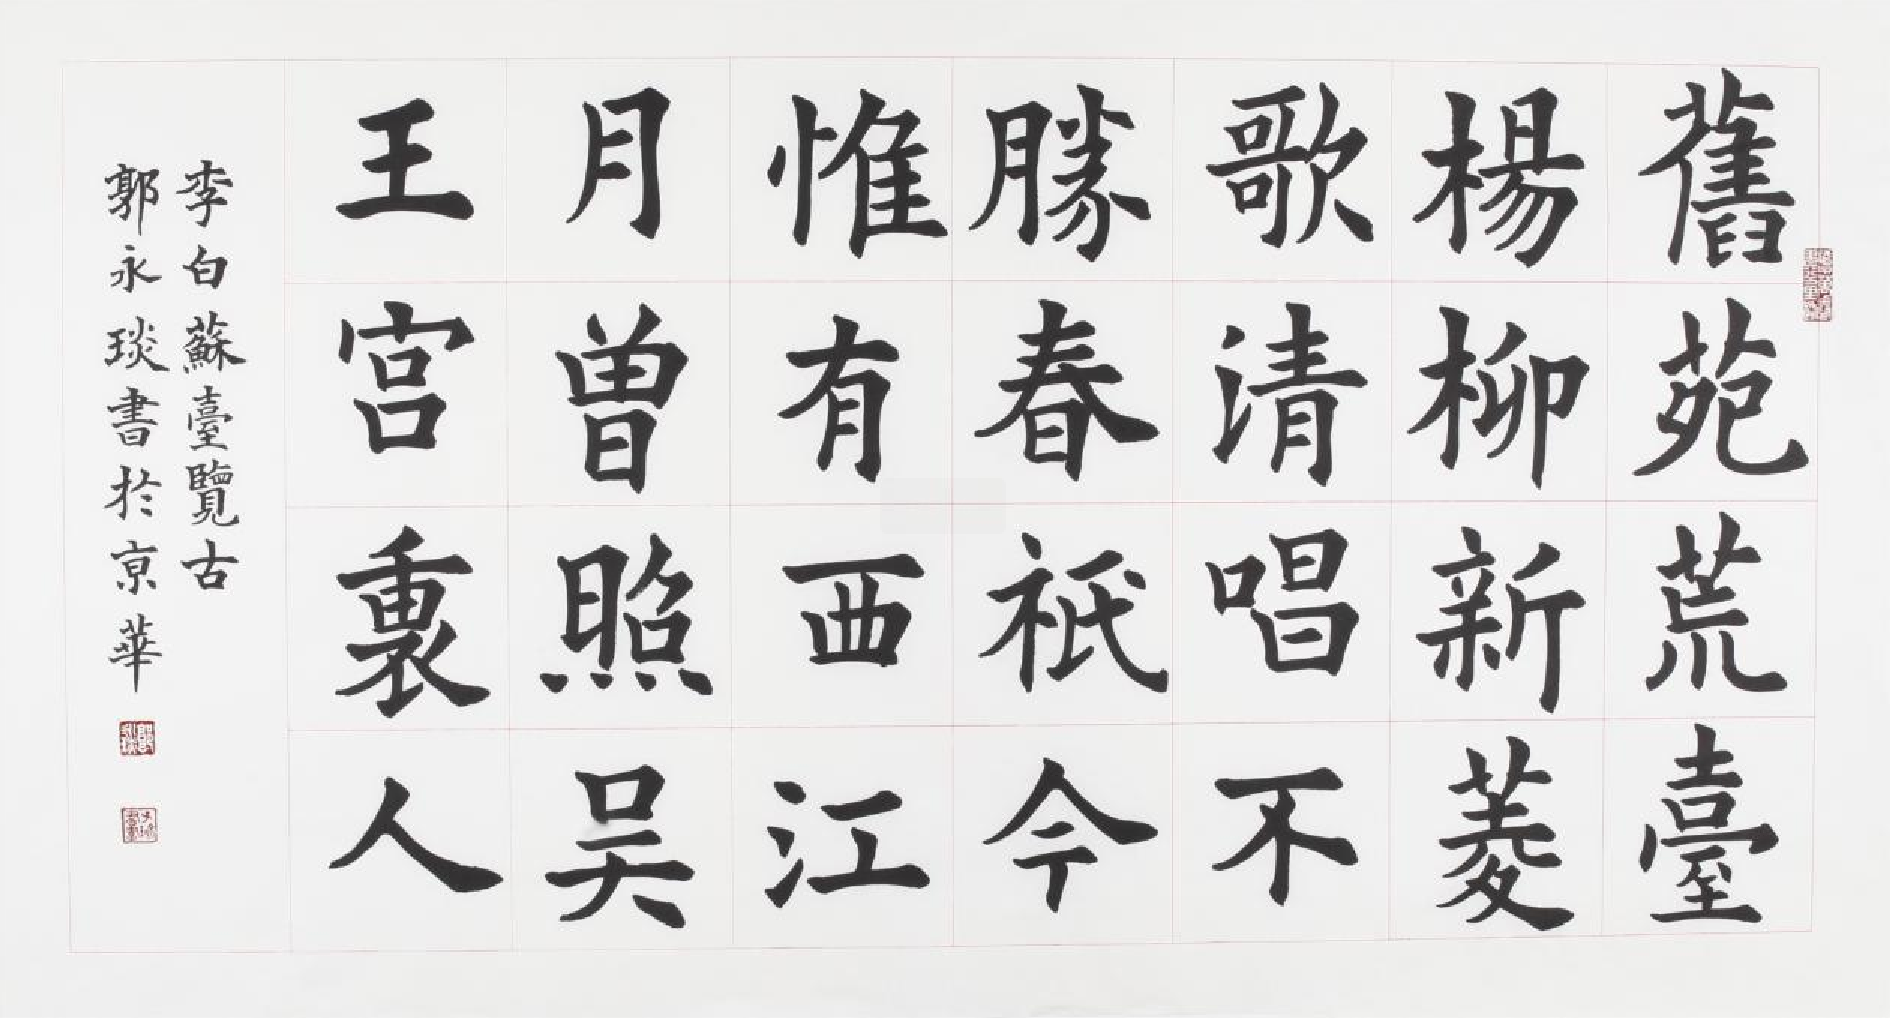 舊苑荒臺
楊柳新菱
歌清唱不
勝春祗今
惟有西江
月曾照吴
王宫裏人
李白蘇臺覽古
郭永琰書於京華